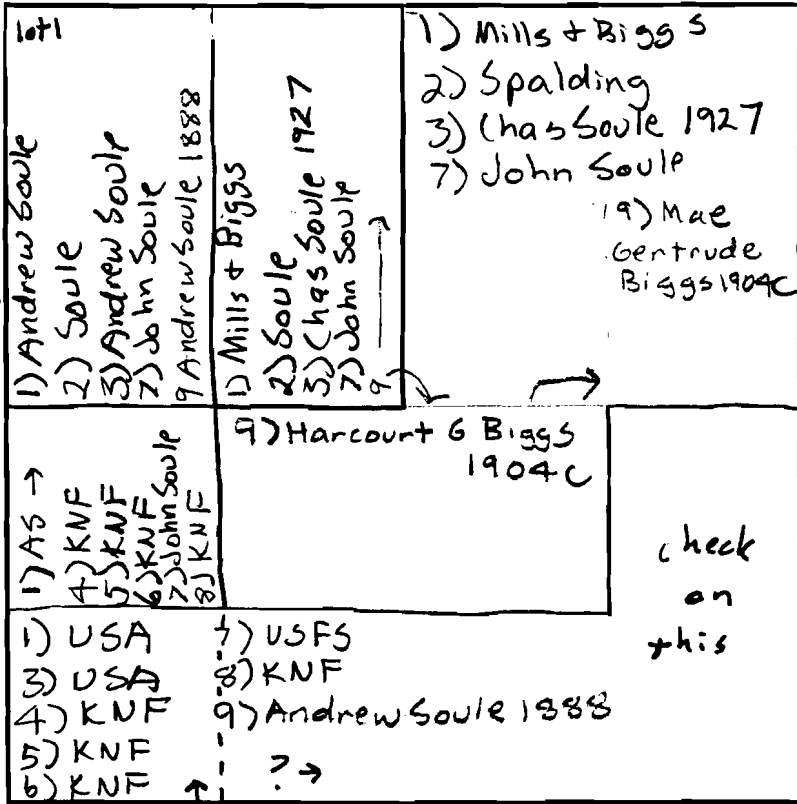 lot1
1) Andrew Soule
2) Soule
3) Andrew Soule
7) John Soule
9 Andrew Soule 1888
1) Mills + Biggs
2) Soule
3) Chas Soule 1927
7) John Soule
9
1) Mills + Biggs
2) Spalding
3) Chas Soule 1927
7) John Soule
19) Mae
Gertrude
Biggs 1904C
1) AS →
4) KNF
5) KNF
6) KNF
7) John Soule
8) KNF
9) Harcourt G Biggs
1904C
check
on
this
1) USA
3) USA
4) KNF
5) KNF
6) KNF
7) USFS
8) KNF
9) Andrew Soule 1888
? →